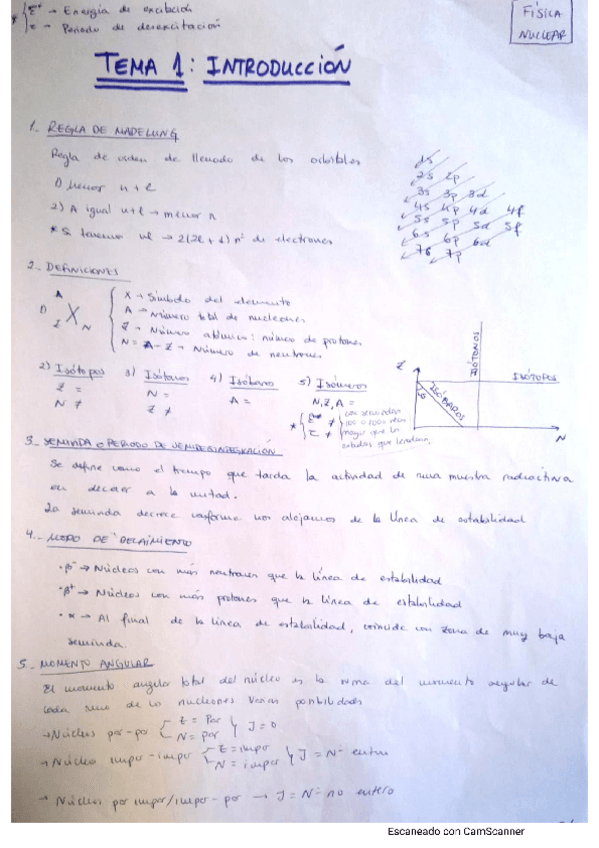 * { E* → Energía de excitación
τ → Periodo de desexcitación
FÍSICA
NUCLEAR
TEMA 1: INTRODUCCIÓN
1_ REGLA DE MADELUNG
Regla de orden de llenado de los orbitales
1) Menor n + l
2) A igual n+l → menor n
* Si tenemos nl → 2(2l + 1) nº de electrones
1s
2s 2p
3s 3p 3d
4s 4p 4d 4f
5s 5p 5d 5f
6s 6p 6d
7s 7p
2_ DEFINICIONES
1) A X Z N
X → Símbolo del elemento
A → Número total de nucleones
Z → Número atómico: número de protones
N = A - Z → Número de neutrones
2) Isótopos
Z =
N ≠
3) Isótonos
N =
Z ≠
4) Isóbaros
A =
5) Isómeros
N, Z, A =
* { E* ≠
τ ≠
mayor que la
Z
ISÓTONOS
ISÓTOPOS
ISÓBAROS
45
N
3_ SEMIVIDA O PERIODO DE SEMIDESINTEGRACIÓN
Se define como el tiempo que tarda la actividad de una muestra radioactiva
en decaer a la mitad.
La semivida decrece conforme nos alejamos de la línea de estabilidad
4_ MODO DE DECAIMIENTO
· β⁻ → Núcleos con más neutrones que la línea de estabilidad
· β⁺ → Núcleos con más protones que la línea de estabilidad
· α → Al final de la línea de estabilidad, coincide con zona de muy baja
semivida.
5_ MOMENTO ANGULAR
El momento angular total del núcleo es la suma del momento angular de
cada uno de lo nucleones. Varias posibilidades
→ Núcleos par-par { Z = Par
N = par } J = 0
→ Núcleo impar-impar { Z = impar
N = impar } J = Nº entero
→ Núcleos par impar/impar-par → J = Nº no entero
Escaneado con CamScanner